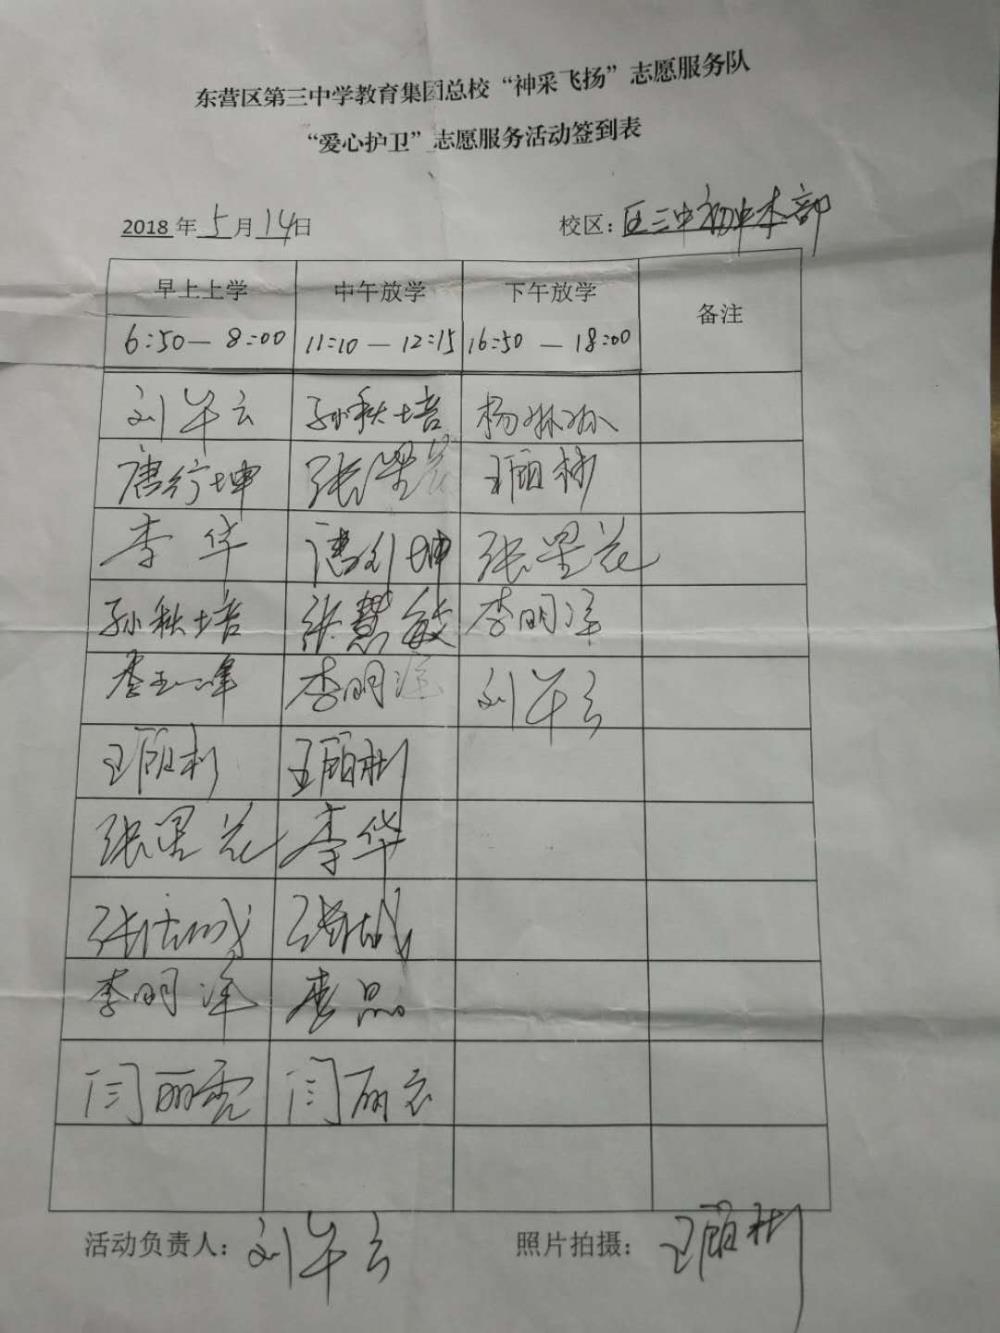 东营区第三中学教育集团总校“神采飞扬”志愿服务队
“爱心护卫”志愿服务活动签到表
2018年5月14日 校区：区三中初中本部
早上上学 中午放学 下午放学 备注
6:50—8:00 11:10—12:15 16:50—18:00
刘军云 孙秋培 杨琳琳
唐行坤 张星花 王顾彬
李华 唐行坤 张星花
孙秋培 张慧敏 李明洋
李玉峰 李明洋 刘军云
王顾彬 王顾彬
张星花 李华
张 张
李明洋 李
闫丽霞 闫丽
活动负责人：刘军云 照片拍摄：王顾彬